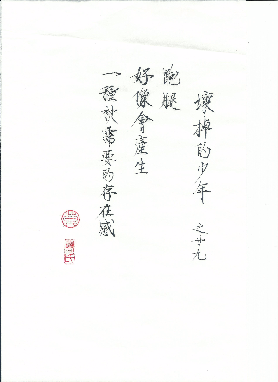 壞掉的少年 之廿九
跑腿
好像會產生
一種被需要的存在感